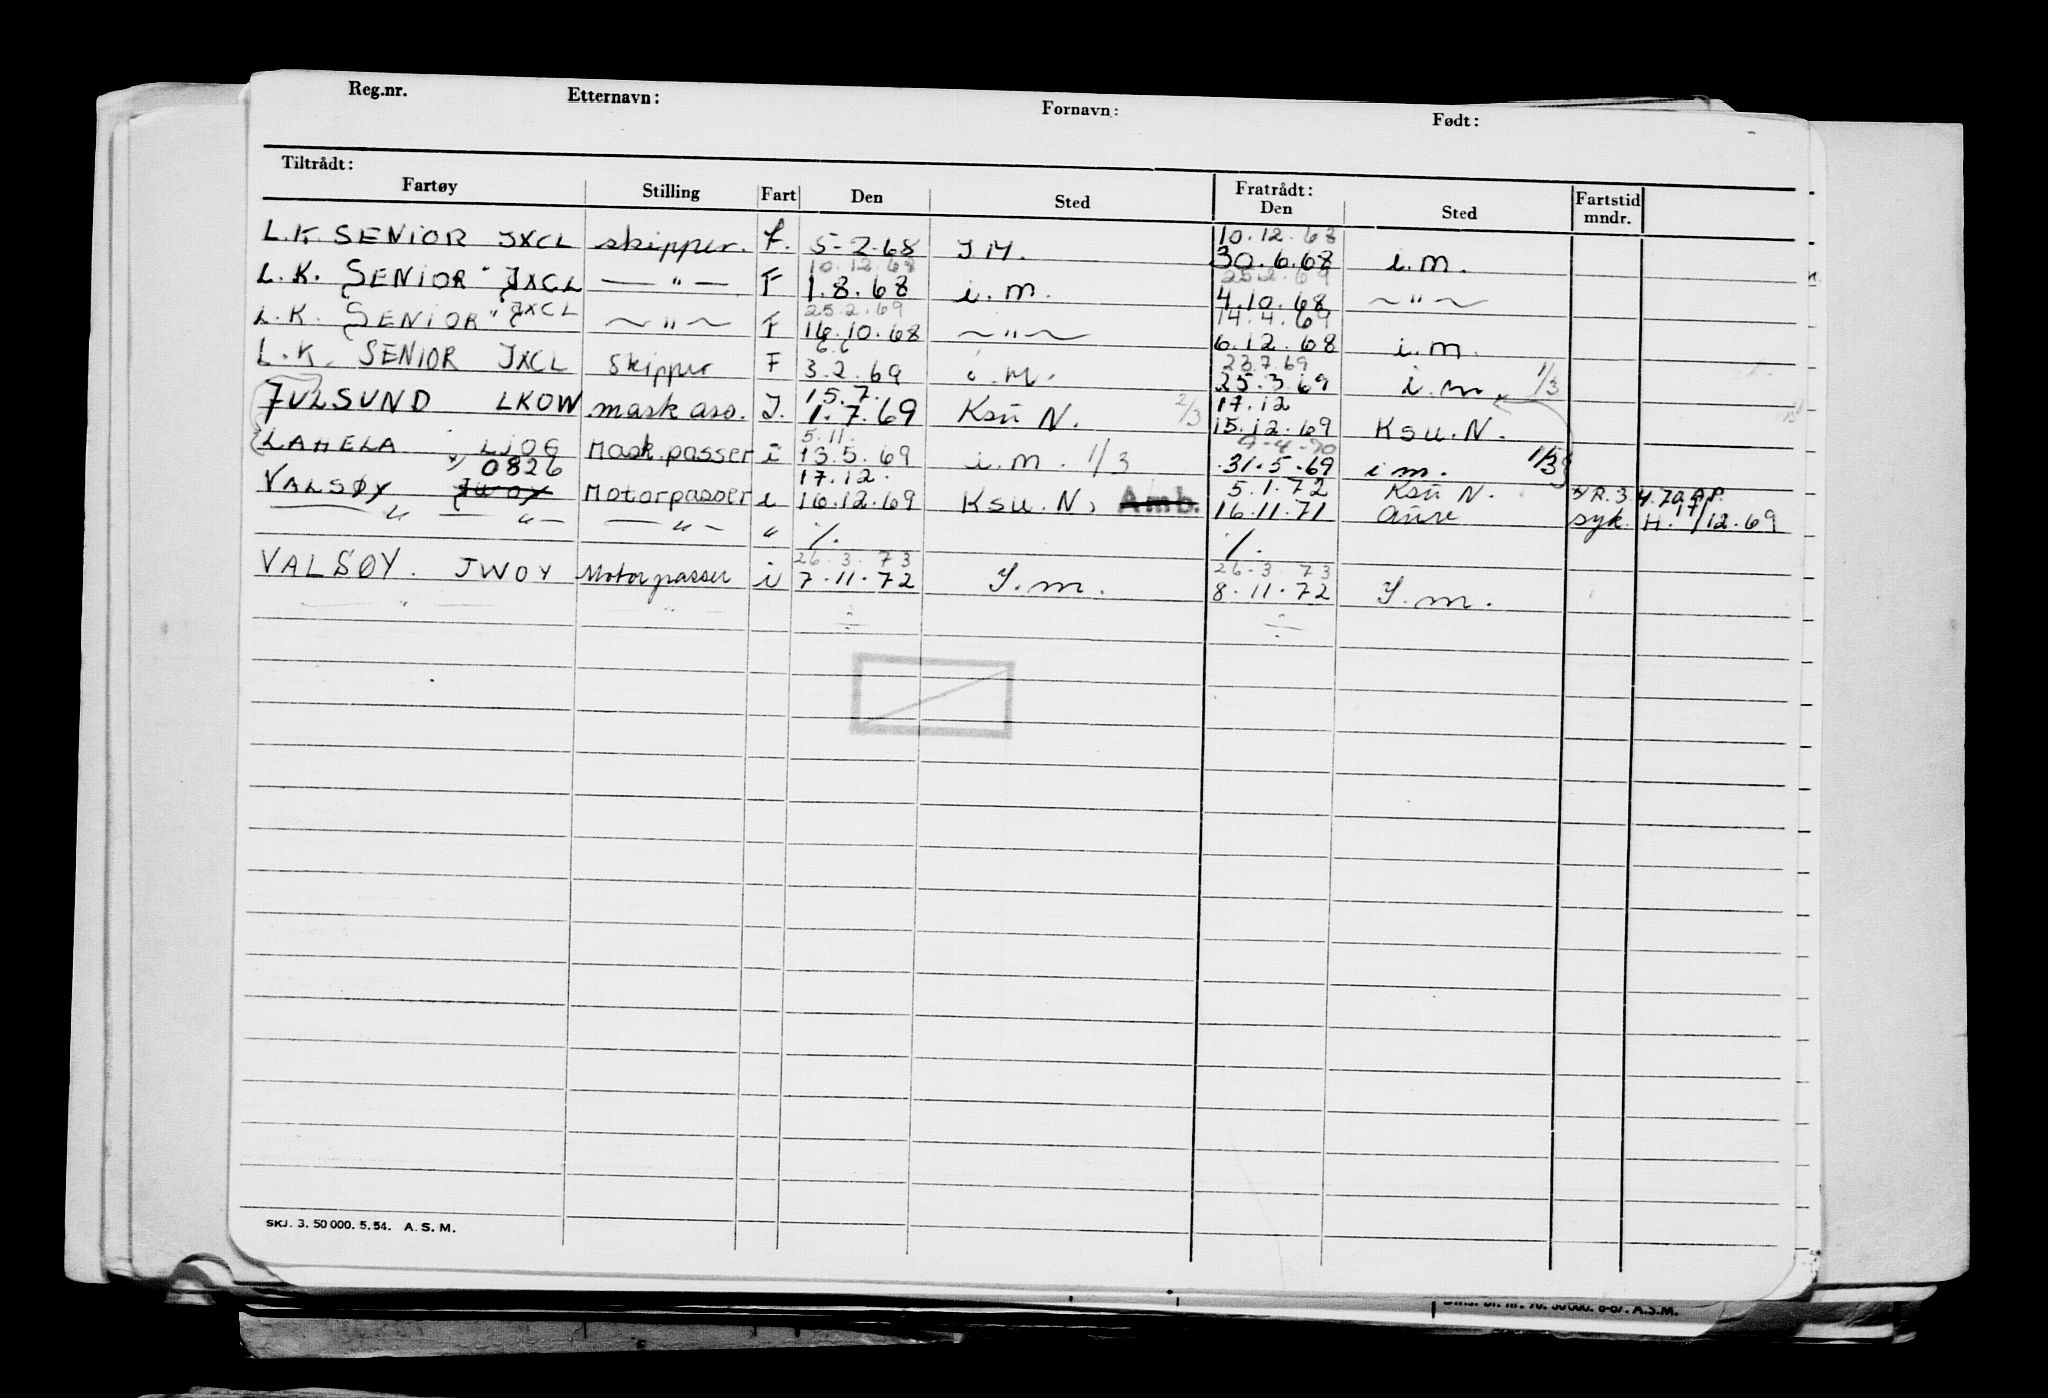 Reg.nr. Etternavn: Fornavn: Født:
Tiltrådt: Fratrådt:
Fartøy Stilling Fart Den Sted Den Sted Fartstid mndr.
10.12.68
L.K. SENIOR JXCL skipper. f. 5-2-68 J M. 30.6.68 i.m.
10.12.68 25.2.69
L.K. SENIOR " JXCL — " — F 1.8.68 i.m. 4.10.68 ~ " ~
25.2.69 14.4.69
L.K. SENIOR " JXCL ~ " ~ F 16.10.68 ~ " ~ 6.12.68 i.m.
6.6 23.7.69
L.K. SENIOR JXCL Skipper F 3.2.69 i.M. 25.3.69 i.m. 1/3
15.7. 17.12
JULSUND LKOW mask ass. J. 1.7.69 Ksu N. 2/3 15.12.69 Ksu.N.
5.11. 9-4-70
LAHELA LJOG Mask.passer i 13.5.69 i.m. 1/3 31.5.69 i m. 1/3
0826 17.12. 5.1.72 Ksu N. R.3.4.70
VALSØY JWOY Motorpasser i 16.12.69 Ksu.N, Amb. 16.11.71 Aure syk. H. 17/12.69
— " — — " — — " — " %. %.
26.3.73 26.3.73
VALSØY. JWOY Motorpasser i 7.11.72 J.m. 8.11.72 J.m.
— " — " ÷ ÷
SKJ. 3. 50 000. 5.54. A.S.M.
70. 50 000. 6-67. A.S.M.